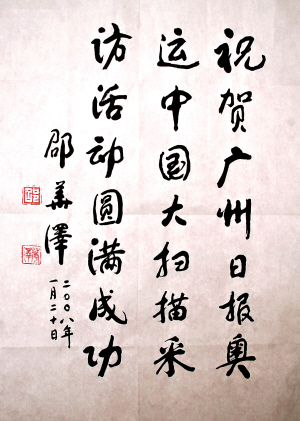 祝贺广州日报奥
运中国大扫描采
访活动圆满成功
邵华泽
二〇〇八年
一月二十日